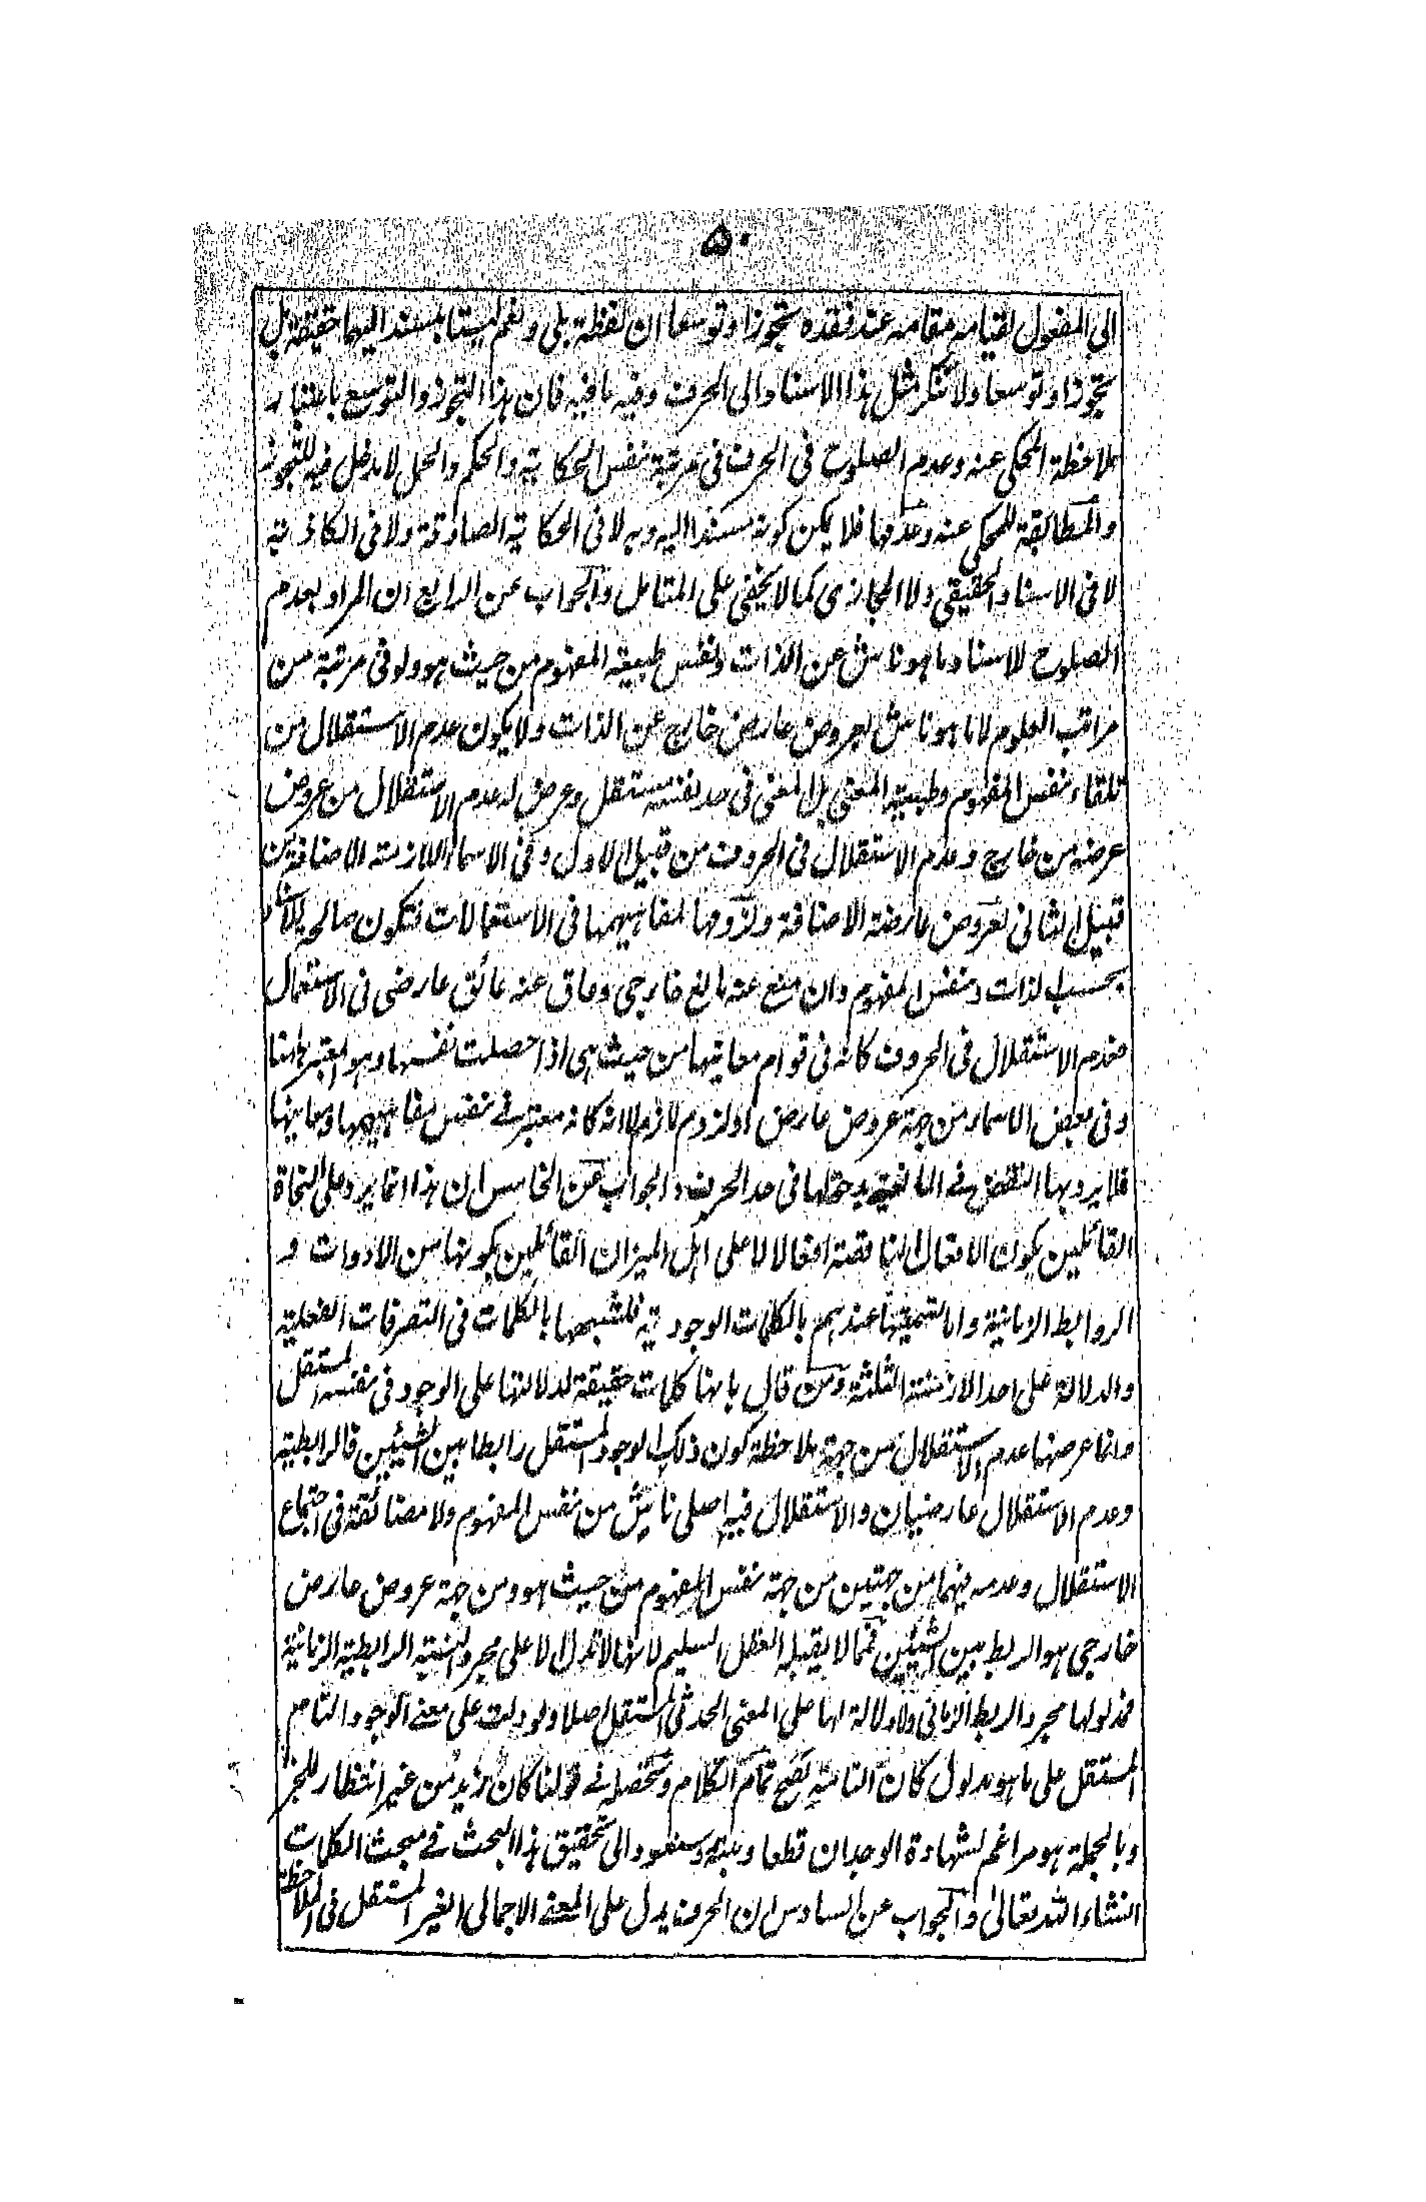 ۵۰
الى المفعول لقيامه مقامه عند فقده تجوزا وتوسعا ان لفظة بلى ونعم ليستا بمسند اليهما حقيقة بل
تجوزا وتوسعا ولا ننكر مثل هذا الاسناد الى الحرف وفيه ما فيه فان هذا التجوز والتوسع باعتبار
ملاحظة المحكى عنه وعدم الصلوح فى الحرف فى مرتبة نفس الحكاية والحكم والحمل لا مدخل فيه للتجوز
والمطابقة للمحكى عنه وعدمها فلا يمكن كونه مسندا اليه وبه لا فى الحكاية الصادقة ولا فى الكاذبة
لا فى الاسناد الحقيقى ولا المجازى كما لا يخفى على المتامل والجواب عن الرابع ان المراد بعدم
الصلوح للاسناد ما هو ناش عن الذات ونفس طبيعة المفهوم من حيث هو ولو فى مرتبة من
مراتب العلوم لا ما هو ناش بعروض عارض خارج عن الذات ولا يكون عدم الاستقلال من
تلقاء نفس المفهوم وطبيعة المعنى بل المعنى فى حد نفسه مستقل وعرض له عدم الاستقلال من عروض
عرضه من خارج وعدم الاستقلال فى الحروف من قبيل الاول وفى الاسماء اللازمة الاضافة من
قبيل الثانى لعروض عارضة الاضافة ولزومها لمفاهيمها فى الاستعمالات فتكون صالحة للاسناد
بحسب الذات ونفس المفهوم وان منع عنه مانع خارجى وعاق عنه عائق عارضى فى الاستعمال
فعدم الاستقلال فى الحروف كانه فى قوام معانيها من حيث هى اذا حصلت نفسها وهو المعتبر ههنا
وفى بعض الاسماء من جهة عروض عارض او لزوم لازم لا انه كانه معتبر فى نفس مفاهيمها ومعانيها
فلا يرد بها النقض فى المانعية بدخولها فى حد الحرف والجواب عن الخامس ان هذا انما يرد على النحاة
القائلين بكون الافعال الناقصة افعالا لا على اهل الميزان القائلين بكونها من الادوات و
الروابط الزمانية واما تسميتها عندهم بالكلمات الوجودية فلشبهها بالكلمات فى التصرفات الفعلية
والدلالة على احد الازمنة الثلثة ومن قال بانها كلمات حقيقة لدلالتها على الوجود فى نفسه المستقل
وانما عرضها عدم الاستقلال من جهة ملاحظة كون ذلك الوجود المستقل رابطا بين الشيئين فالرابطية
وعدم الاستقلال عارضيان والاستقلال فيها اصلى ناش من نفس المفهوم ولا مضائقة فى اجتماع
الاستقلال وعدمه فيهما من جهتين من جهة نفس المفهوم من حيث هو ومن جهة عروض عارض
خارجى هو الربط بين الشيئين فمما لا يقبله العقل السليم لانها لا تدل الا على مجرد النسبة الرابطية الزمانية
فمدلولها مجرد الربط الزمانى ولا دلالة لها على المعنى الحدثى المستقل اصلا ولو دلت على معنى الوجود التام
المستقل على ما هو مدلول كان التامة يصح تمام الكلام وتحصله فى قولنا كان زيد من غير انتظار للخبر
وبالجملة هو مراغم لشهادة الوجدان قطعا وبتة وسنعود الى تحقيق هذا البحث فى مبحث الكلمات
انشاء الله تعالى والجواب عن السادس ان الحرف يدل على المعنى الاجمالى الغير المستقل فى الملاحظة